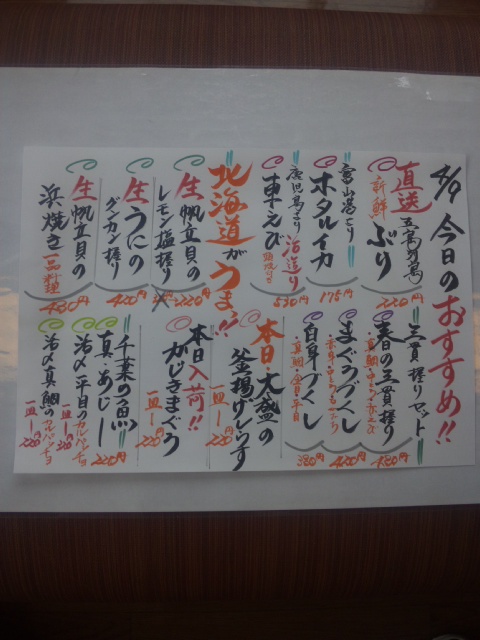 4/9 今日のおすすめ!!
直送
新鮮
ぶり
220円
富山湾より
ホタルイカ
175円
鹿児島より
活造り
車えび
530円
北海道がうまい!!
生帆立貝の
レモン塩握り
220円
生うにの
グンカン握り
420円
生帆立貝の
浜焼き
一品料理
480円
三貫握りセット
春の三貫握り
480円
まぐろづくし
420円
白身づくし
・真鯛・
平目
380円
本日・大盛の
釜揚げしらす
一皿
220円
本日入荷!!
かじきまぐろ
一皿
220円
千葉の魚
真・あじ
220円
活〆・平目のカルパッチョ
一皿
活〆真鯛のカルパッチョ
一皿
220円